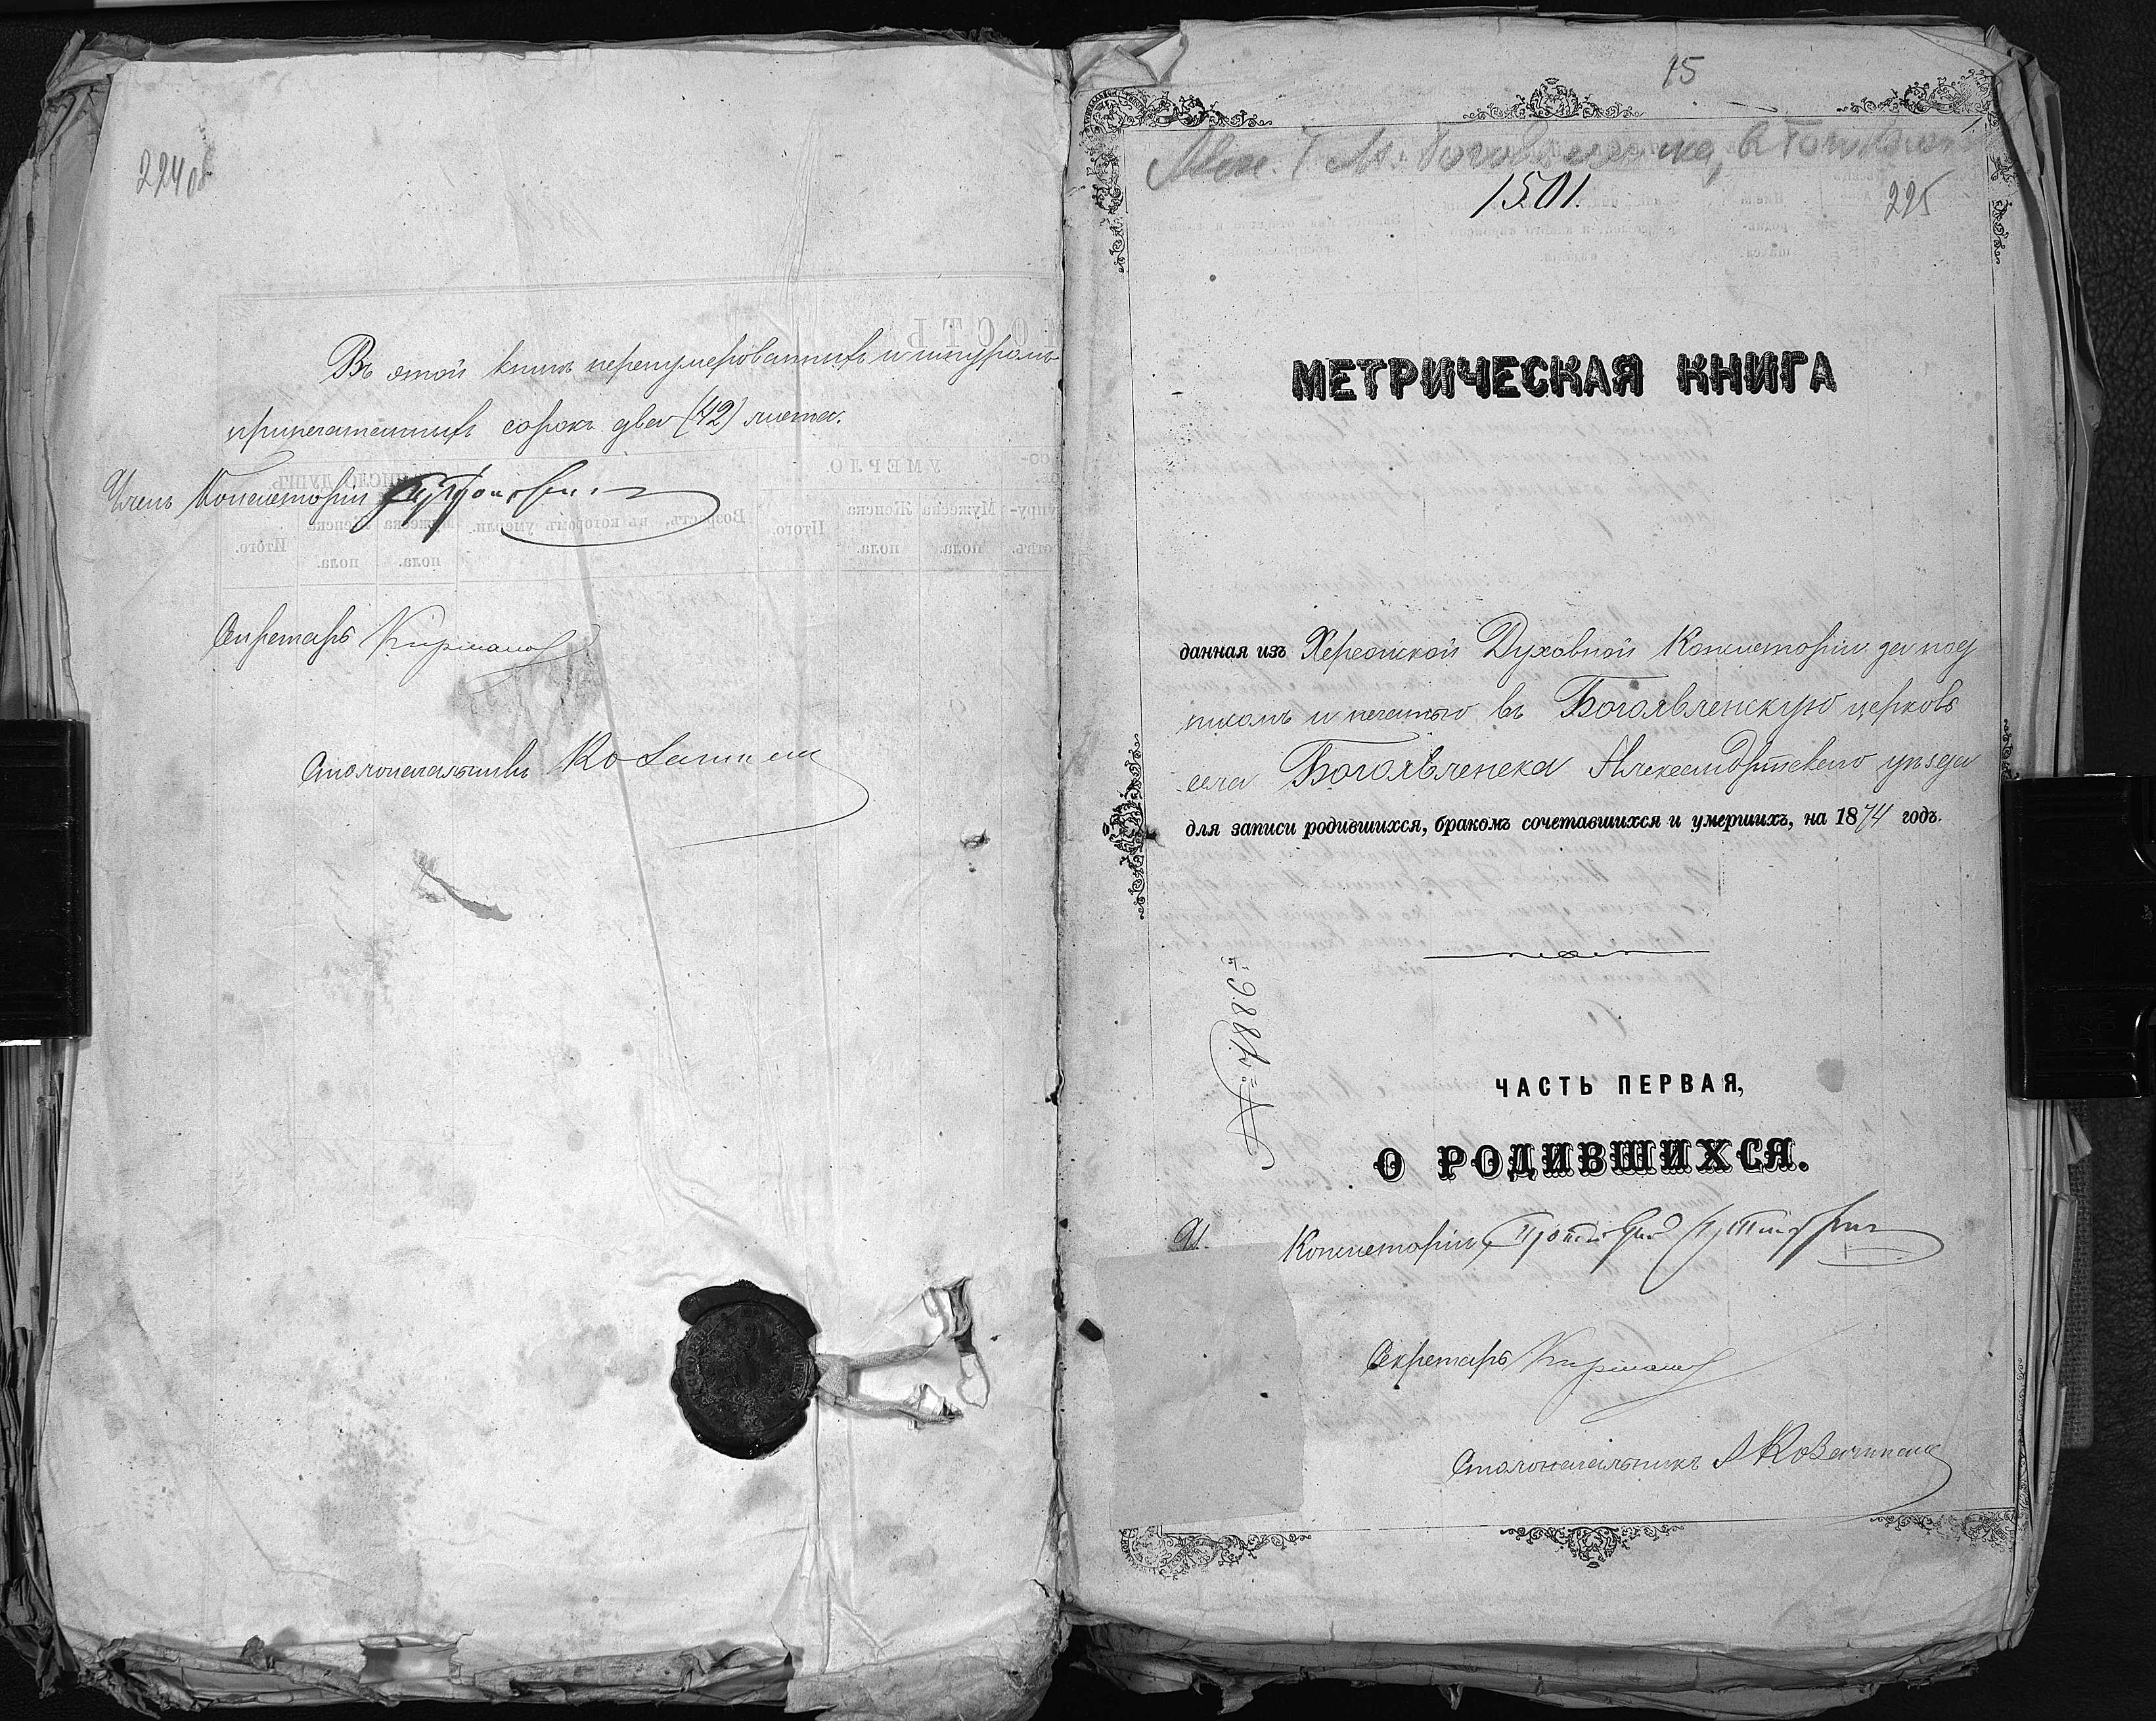 224 об
Въ этой книгѣ перенумерованныхъ и шнуромъ
припечатанныхъ сорокъ два (42) листа.
Членъ Консисторіи
Секретарь
Столоначальникъ
15
1501.
225
МЕТРИЧЕСКАЯ КНИГА
данная изъ Херсонской Духовной Консисторіи за под
писомъ и печатью въ Богоявленскую церковь
села Богоявленска Александрійскаго уѣзда
для записи родившихся, бракомъ сочетавшихся и умершихъ, на 1874 годъ.
ЧАСТЬ ПЕРВАЯ,
О РОДИВШИХСЯ.
Консисторіи
Секретарь
Столоначальникъ